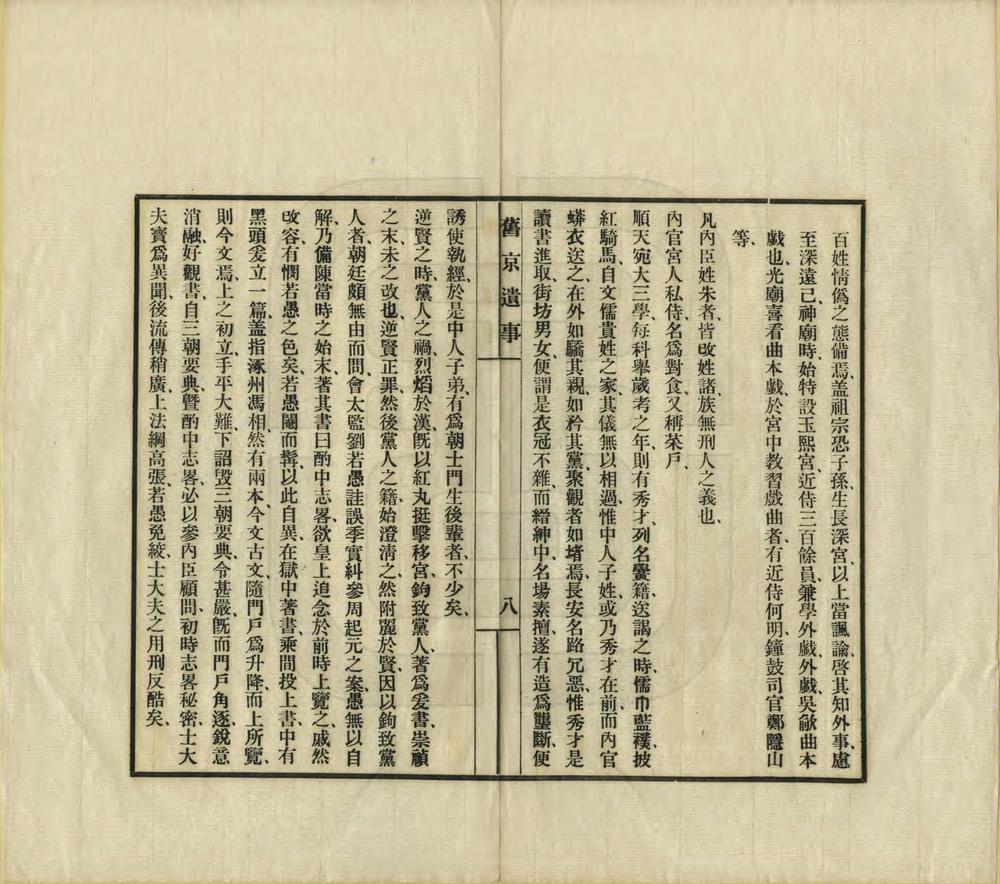 百姓情僞之態備焉、盖祖宗恐子孫生長深宮、以上當諷諭、啓其知外事、慮
至深遠已、神廟時、始特設玉熙宮、近侍三百餘員、兼學外戲、外戲、吳歈曲本
戲也、光廟喜看曲本戲、於宮中教習戲曲者、有近侍何明、鐘鼓司官鄭隱山
等、
凡內臣姓朱者、皆改姓諸、族無刑人之義也、
內官宮人私侍、名爲對食、又稱菜戶、
順天宛大三學、每科舉歲考之年、則有秀才、列名黌籍、送謁之時、儒巾藍襆、披
紅騎馬、自文儒貴姓之家、其儀無以相過、惟中人子姓、或乃秀才在前、而內官
蟒衣送之在外、如驕其親、如矜其黨、聚觀者如堵焉、長安名路冗惡、惟秀才是
讀書進取、街坊男女、便謂是衣冠不雜、而縉紳中、名場素擅、遂有造爲壟斷、便
舊京遺事
八
誘使執經、於是中人子弟、有爲朝士門生後輩者、不少矣、
逆賢之時、黨人之禍、烈熖於漢、旣以紅丸挺擊移宮、鉤致黨人、著爲爰書、崇禎
之末、未之改也、逆賢正罪、然後黨人之籍、始澄清之、然附麗於賢、因以鉤致黨
人者、朝廷頗無由而問、會太監劉若愚註誤季實糾參周起元之案、愚無以自
解、乃備陳當時之始末、著其書曰酌中志畧、欲皇上追念於前時、上覽之、戚然
改容、有憫若愚之色矣、若愚闒而髯、以此自異、在獄中著書、乘間投上、書中有
黑頭爰立一篇、盖指涿州馮相、然有兩本、今文古文、隨門戶爲升降、而上所覽、
則今文焉、上之初立、手平大難、下詔毀三朝要典、令甚嚴、旣而門戶角逐、銳意
消融、好觀書、自三朝要典、曁酌中志畧、必以參內臣顧問、初時志畧秘密、士大
夫寳爲異聞、後流傳稍廣、上法綱高張、若愚免綾、士大夫之用刑反酷矣、